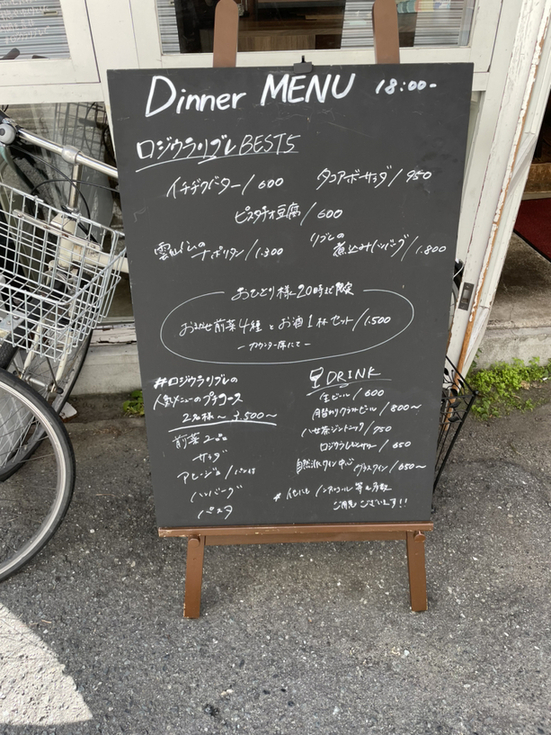 Dinner MENU 18:00-
ロジウラリブレBEST5
イチヂクバター/600 タコアボサラダ/950
ピスタチオ豆腐/600
ナポリタン/1.300
リブレの
煮込みハンバーグ/1.800
おひとり様20時迄限定
おまかせ前菜4種とお酒1杯セット/1.500
ーカウンター席にてー
#ロジウラリブレの
人気メニューのプチコース
2名様〜 3,500〜
前菜2
サラダ
アヒージョ/バケット
ハンバーグ
パスタ
DRINK
生ビール/600
月替わりクラフトビール/800〜
ハーブ茶ジントニック/750
ロジウラレモンサワー/650
自然派ワイン中心 グラスワイン/650〜
#他にも ノンアルコール等も多数
ご用意ございます!!